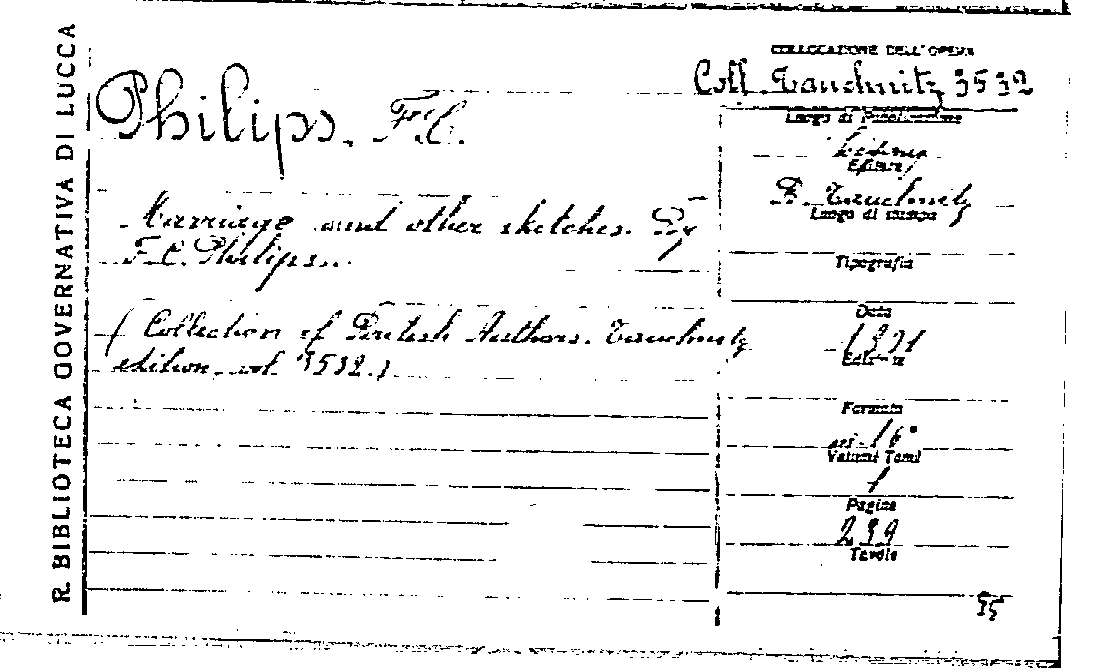 R. BIBLIOTECA GOVERNATIVA DI LUCCA
COLLOCAZIONE DELL'OPERA
Coll. Tauchnitz 3532
Philips. F. C.
Marriage and other sketches. By
F. C. Philips.
(Collection of British Authors. Tauchnitz
edition vol. 3532.)
Luogo di Pubblicazione
Editore
B. Tauchnitz
Luogo di stampa
Tipografia
Data
Edizione
Formato
in-16°
Volumi Tomi
1
Pagine
Tavole